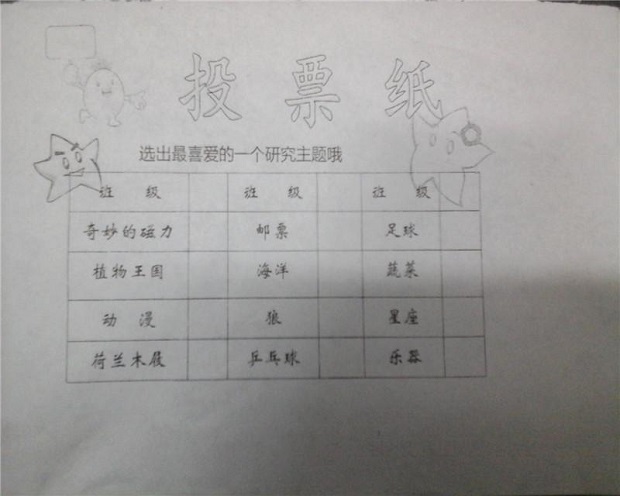 投票纸
选出最喜爱的一个研究主题哦
班 级 班 级 班 级
奇妙的磁力 邮票 足球
植物王国 海洋 蔬菜
动 漫 狼 星座
荷兰木屐 乒乓球 乐器